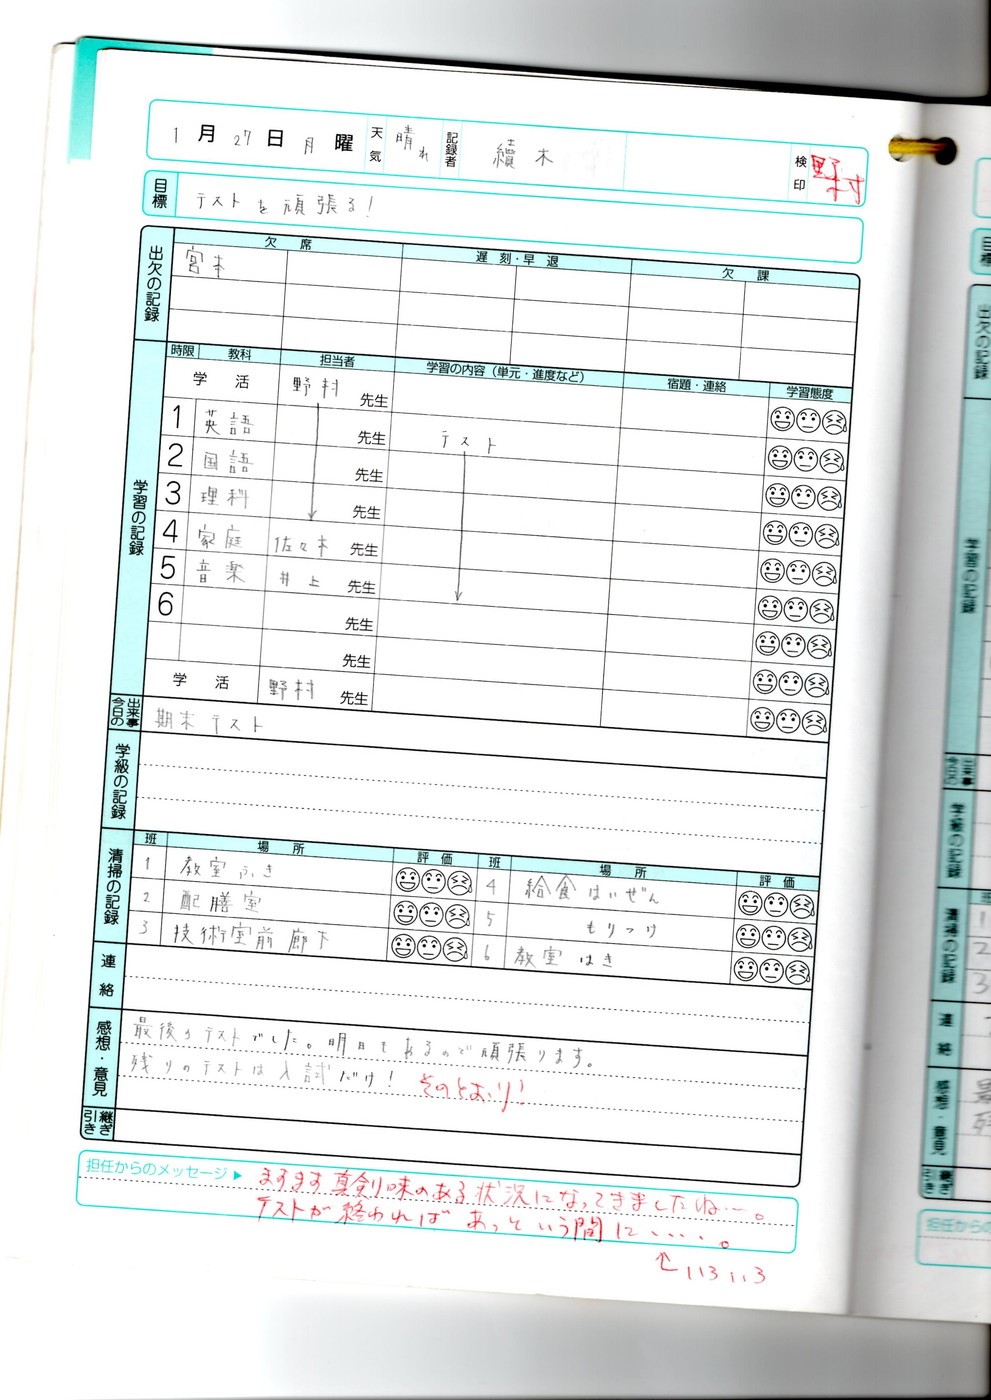 1月27日月曜 天気 晴れ 記録者 續木 検印 野村
目標 テストを頑張る!
出欠の記録
欠席 遅刻・早退 欠課
宮本
学習の記録
時限 教科 担当者 学習の内容（単元・進度など） 宿題・連絡 学習態度
学活 野村 先生
1 英語 先生 テスト
2 国語 先生
3 理科 先生
4 家庭 佐々木 先生
5 音楽 井上 先生
6 先生
先生
学活 野村 先生
今日の出来事 期末テスト
学級の記録
清掃の記録
班 場所 評価 班 場所 評価
1 教室ふき 4 給食はいぜん
2 配膳室 5 もりつけ
3 技術室前廊下 6 教室はき
連絡
感想・意見
最後のテストでした。明日もあるので頑張ります。
残りのテストは入試だけ! そのとおり!
引き継ぎ
担任からのメッセージ▶ ますます真剣味のある状況になってきましたね…。
テストが終わればあっという間に・・・・。
↑いろいろ
出欠の記録
学習の記録
今日の出来事
学級の記録
清掃の記録
1
2
3
連絡
感想・意見
最
残
引き継ぎ
担任からの